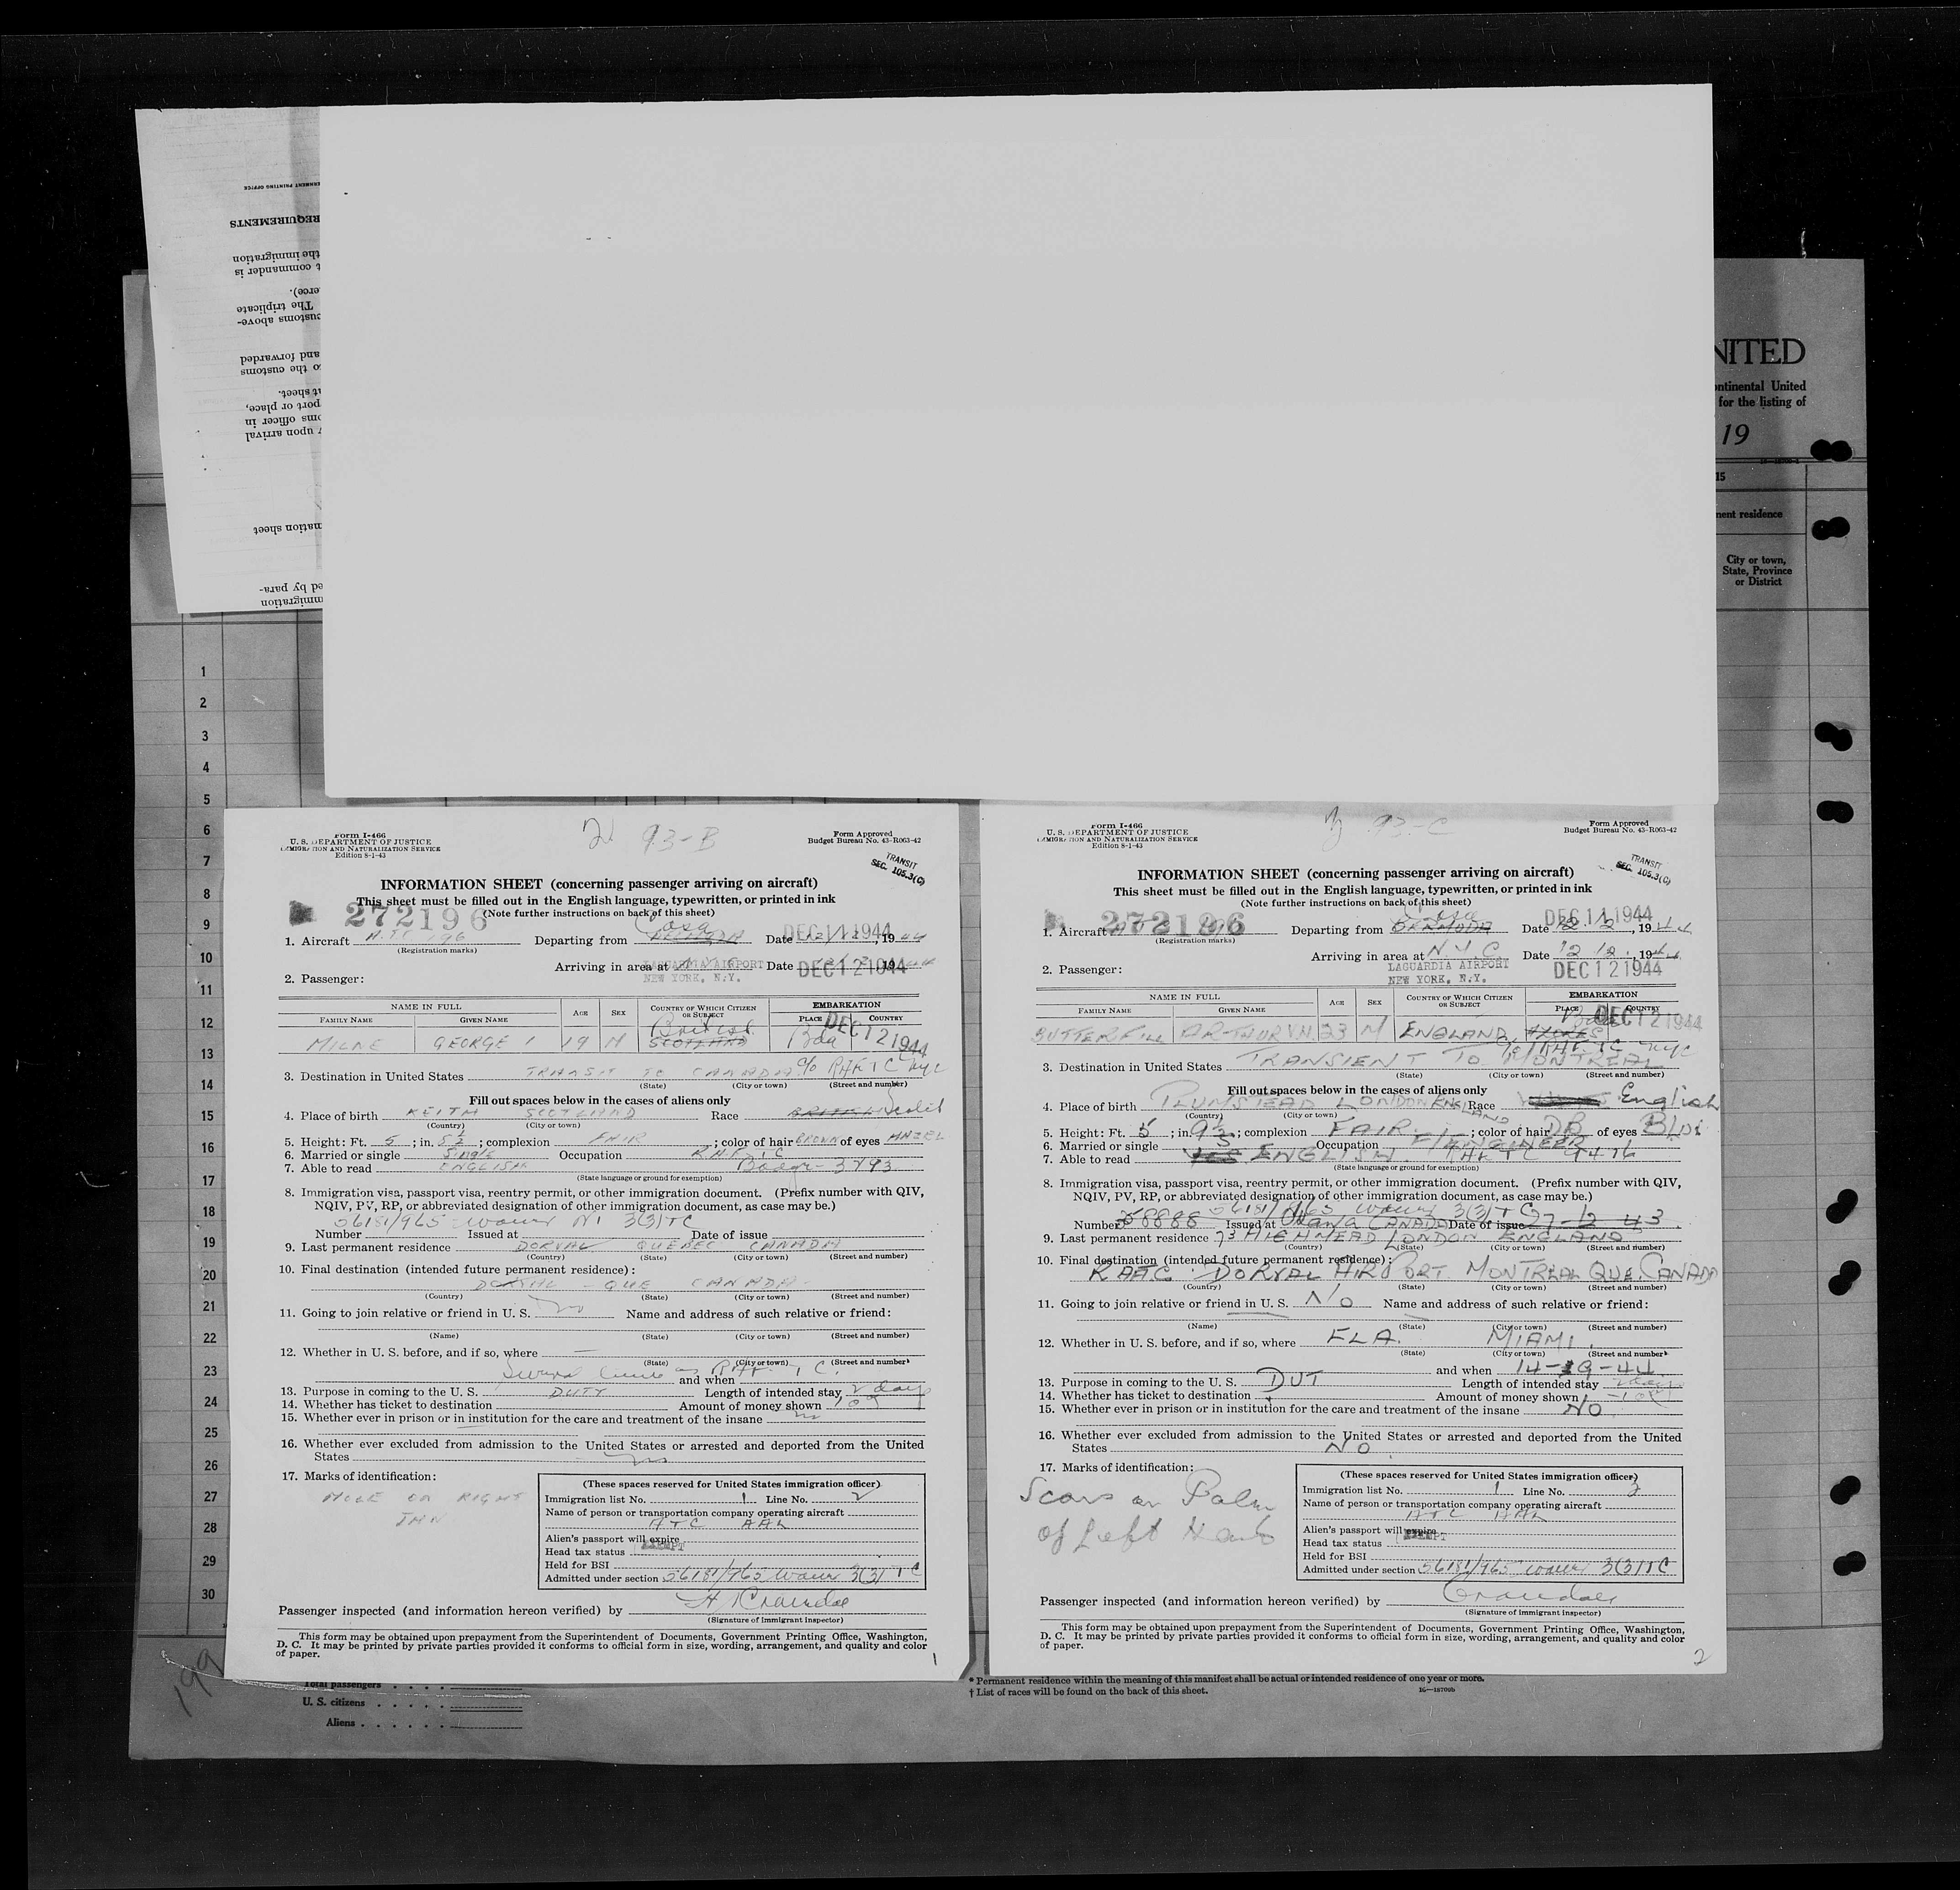 REQUIREMENTS
the immigration
t commander is
erce).
The triplicate
customs above-
and forwarded
to the customs
t sheet.
port or place,
oms officer in
upon arrival
mation sheet
ed by para-
mmigration
NITED
ontinental United
for the listing of
19
15
nent residence
City or town,
State, Province
or District
1
2
3
4
5
6
7
8
9
10
11
12
13
14
15
16
17
18
19
20
21
22
23
24
25
26
27
28
29
30
2 93-B
Form I-466
U. S. DEPARTMENT OF JUSTICE
IMMIGRATION AND NATURALIZATION SERVICE
Edition 8-1-43
Form Approved
Budget Bureau No. 43-R063-42
TRANSIT
SEC. 105.3(C)
INFORMATION SHEET (concerning passenger arriving on aircraft)
This sheet must be filled out in the English language, typewritten, or printed in ink
(Note further instructions on back of this sheet)
272196
1. Aircraft Departing from Casa Date DEC 11 1944, 1944
(Registration marks)
Arriving in area at LAGUARDIA AIRPORT NEW YORK, N.Y. Date DEC 12 1944
2. Passenger:
NAME IN FULL AGE SEX COUNTRY OF WHICH CITIZEN OR SUBJECT EMBARKATION
FAMILY NAME GIVEN NAME PLACE COUNTRY
MILNE GEORGE I 19 M British SCOTLAND Bda DEC 12 1944
3. Destination in United States TRANSIT TO CANADA c/o RAFTC NYC
(State) (City or town) (Street and number)
Fill out spaces below in the cases of aliens only
4. Place of birth KEITH SCOTLAND Race BRITISH Scotch
(Country) (City or town)
5. Height: Ft. 5; in. 5½; complexion FAIR; color of hair BROWN of eyes HAZEL
6. Married or single Single Occupation R.A.F.T.C
7. Able to read ENGLISH Badge-3793
(State language or ground for exemption)
8. Immigration visa, passport visa, reentry permit, or other immigration document. (Prefix number with QIV,
NQIV, PV, RP, or abbreviated designation of other immigration document, as case may be.)
56181/965 waiver 3(3)TC
Number Issued at Date of issue
9. Last permanent residence DORVAL QUEBEC CANADA
(Country) (State) (City or town) (Street and number)
10. Final destination (intended future permanent residence):
DORVAL - QUE CANADA
(Country) (State) (City or town) (Street and number)
11. Going to join relative or friend in U. S. No Name and address of such relative or friend:
(Name) (State) (City or town) (Street and number)
12. Whether in U. S. before, and if so, where
(State) (City or town) (Street and number)
Several times as RAF T C. and when
13. Purpose in coming to the U. S. DUTY Length of intended stay 2 days
14. Whether has ticket to destination Amount of money shown
15. Whether ever in prison or in institution for the care and treatment of the insane no
16. Whether ever excluded from admission to the United States or arrested and deported from the United
States no
17. Marks of identification:
MOLE ON RIGHT
JAW
(These spaces reserved for United States immigration officer)
Immigration list No. 1 Line No. 2
Name of person or transportation company operating aircraft
ATC AAL
Alien's passport will expire
Head tax status EXEMPT
Held for BSI
Admitted under section 56181/965 waiver 3(3)TC
Passenger inspected (and information hereon verified) by H Crandall
(Signature of immigrant inspector)
This form may be obtained upon prepayment from the Superintendent of Documents, Government Printing Office, Washington,
D. C. It may be printed by private parties provided it conforms to official form in size, wording, arrangement, and quality and color
of paper.
1
3 93-C
Form I-466
U. S. DEPARTMENT OF JUSTICE
IMMIGRATION AND NATURALIZATION SERVICE
Edition 8-1-43
Form Approved
Budget Bureau No. 43-R063-42
TRANSIT
SEC. 105.3(C)
INFORMATION SHEET (concerning passenger arriving on aircraft)
This sheet must be filled out in the English language, typewritten, or printed in ink
(Note further instructions on back of this sheet)
272196
1. Aircraft Departing from Casa BERMUDA Date DEC 11 1944 12.12, 1944
(Registration marks)
Arriving in area at N.Y.C. Date 12 12, 1944
LAGUARDIA AIRPORT NEW YORK, N.Y. DEC 12 1944
2. Passenger:
NAME IN FULL AGE SEX COUNTRY OF WHICH CITIZEN OR SUBJECT EMBARKATION
FAMILY NAME GIVEN NAME PLACE COUNTRY
BUTTERFILL ARTHUR W. 23 M ENGLAND Bda DEC 12 1944
3. Destination in United States TRANSIENT TO MONTREAL c/o RAFTC NYC
(State) (City or town) (Street and number)
Fill out spaces below in the cases of aliens only
4. Place of birth PLUMSTEAD LONDON ENGLAND Race English
(Country) (City or town)
5. Height: Ft. 5; in. 9½; complexion FAIR; color of hair DB of eyes Blue
6. Married or single S Occupation F/ENGINEER
7. Able to read Yes ENGLISH. RAFTC 9476
(State language or ground for exemption)
8. Immigration visa, passport visa, reentry permit, or other immigration document. (Prefix number with QIV,
NQIV, PV, RP, or abbreviated designation of other immigration document, as case may be.)
56181/965 waiver 3(3)TC
Number 58888 Issued at Ottawa CANADA Date of issue 27-12-43
9. Last permanent residence 73 HIGHMEAD LONDON ENGLAND
(Country) (State) (City or town) (Street and number)
10. Final destination (intended future permanent residence):
RAFTC. DORVAL AIRPORT MONTREAL QUE. CANADA
(Country) (State) (City or town) (Street and number)
11. Going to join relative or friend in U. S. No Name and address of such relative or friend:
(Name) (State) (City or town) (Street and number)
12. Whether in U. S. before, and if so, where FLA. MIAMI
(State) (City or town) (Street and number)
and when 14-9-44
13. Purpose in coming to the U. S. DUT Length of intended stay 2 days
14. Whether has ticket to destination Amount of money shown
15. Whether ever in prison or in institution for the care and treatment of the insane NO
16. Whether ever excluded from admission to the United States or arrested and deported from the United
States NO
17. Marks of identification:
Scars on Palm
of Left Hand
(These spaces reserved for United States immigration officer)
Immigration list No. 1 Line No. 3
Name of person or transportation company operating aircraft
ATC AAL
Alien's passport will expire
Head tax status EXEMPT
Held for BSI
Admitted under section 56181/965 waiver 3(3)TC
Passenger inspected (and information hereon verified) by Crandall
(Signature of immigrant inspector)
This form may be obtained upon prepayment from the Superintendent of Documents, Government Printing Office, Washington,
D. C. It may be printed by private parties provided it conforms to official form in size, wording, arrangement, and quality and color
of paper.
2
199
Total passengers
U. S. citizens
Aliens
* Permanent residence within the meaning of this manifest shall be actual or intended residence of one year or more.
† List of races will be found on the back of this sheet.
16—18700b